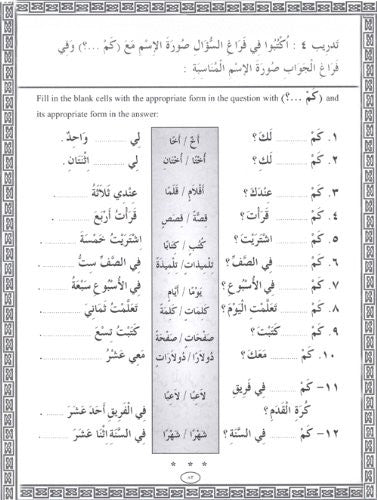 تدريب ٤ : اُكْتُبُوا فِي فَرَاغِ السُّؤَالِ صُورَةَ الإِسْمِ مَعَ (كَمْ ...؟) وَفِي
فِرَاغِ الْجَوَابِ صُورَةَ الإِسْمِ الْمُنَاسِبَةَ :
Fill in the blank cells with the appropriate form in the question with (كَمْ ...؟) and
its appropriate form in the answer:
١. كَمْ ........ لَكَ؟ أَخٌ / أَخًا لِي ........ وَاحِدٌ.
٢. كَمْ ........ لَكِ؟ أُخْتًا / أُخْتَانِ لِي ........ اِثْنَتَانِ .
٣. كَمْ ........ عِنْدَكَ؟ أَقْلَامٍ / قَلَمًا عِنْدِي ثَلَاثَةُ ........ .
٤. كَمْ ........ قَرَأْتَ؟ قِصَّةً / قِصَصٍ قَرَأْتُ أَرْبَعَ ........ .
٥. كَمْ ........ اِشْتَرَيْتَ؟ كُتُبٍ / كِتَابًا اِشْتَرَيْتُ خَمْسَةَ ........ .
٦. كَمْ ........ فِي الصَّفِّ؟ تِلْمِيذَاتٍ / تِلْمِيذَةً فِي الصَّفِّ سِتُّ ........ .
٧. كَمْ ........ فِي الأُسْبُوعِ؟ يَوْمًا / أَيَّامٍ فِي الأُسْبُوعِ سَبْعَةُ ........ .
٨. كَمْ ........ تَعَلَّمْتَ الْيَوْمَ؟ كَلِمَاتٍ / كَلِمَةً تَعَلَّمْتُ ثَمَانِيَ ........ .
٩. كَمْ ........ كَتَبْتَ؟ صَفَحَاتٍ / صَفْحَةً كَتَبْتُ تِسْعَ ........ .
١٠. كَمْ ........ مَعَكَ؟ دُولَارًا / دُولَارَاتٍ مَعِي عَشْرُ ........ .
١١- كَمْ ........ فِي فَرِيقِ
كُرَةِ الْقَدَمِ؟ لَاعِبًا / لَاعِبًا فِي الْفَرِيقِ أَحَدَ عَشَرَ ........ .
١٢- كَمْ ........ فِي السَّنَةِ؟ شَهْرًا / شَهْرًا فِي السَّنَةِ اِثْنَا عَشَرَ ........ .
* * *
٨٣